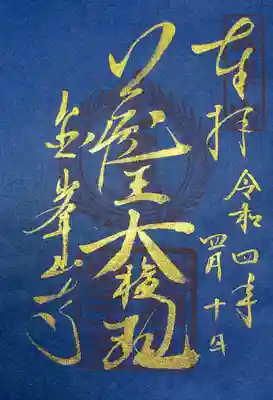 奉拝 令和四年
四月十日
蔵王大権現
金峯山寺